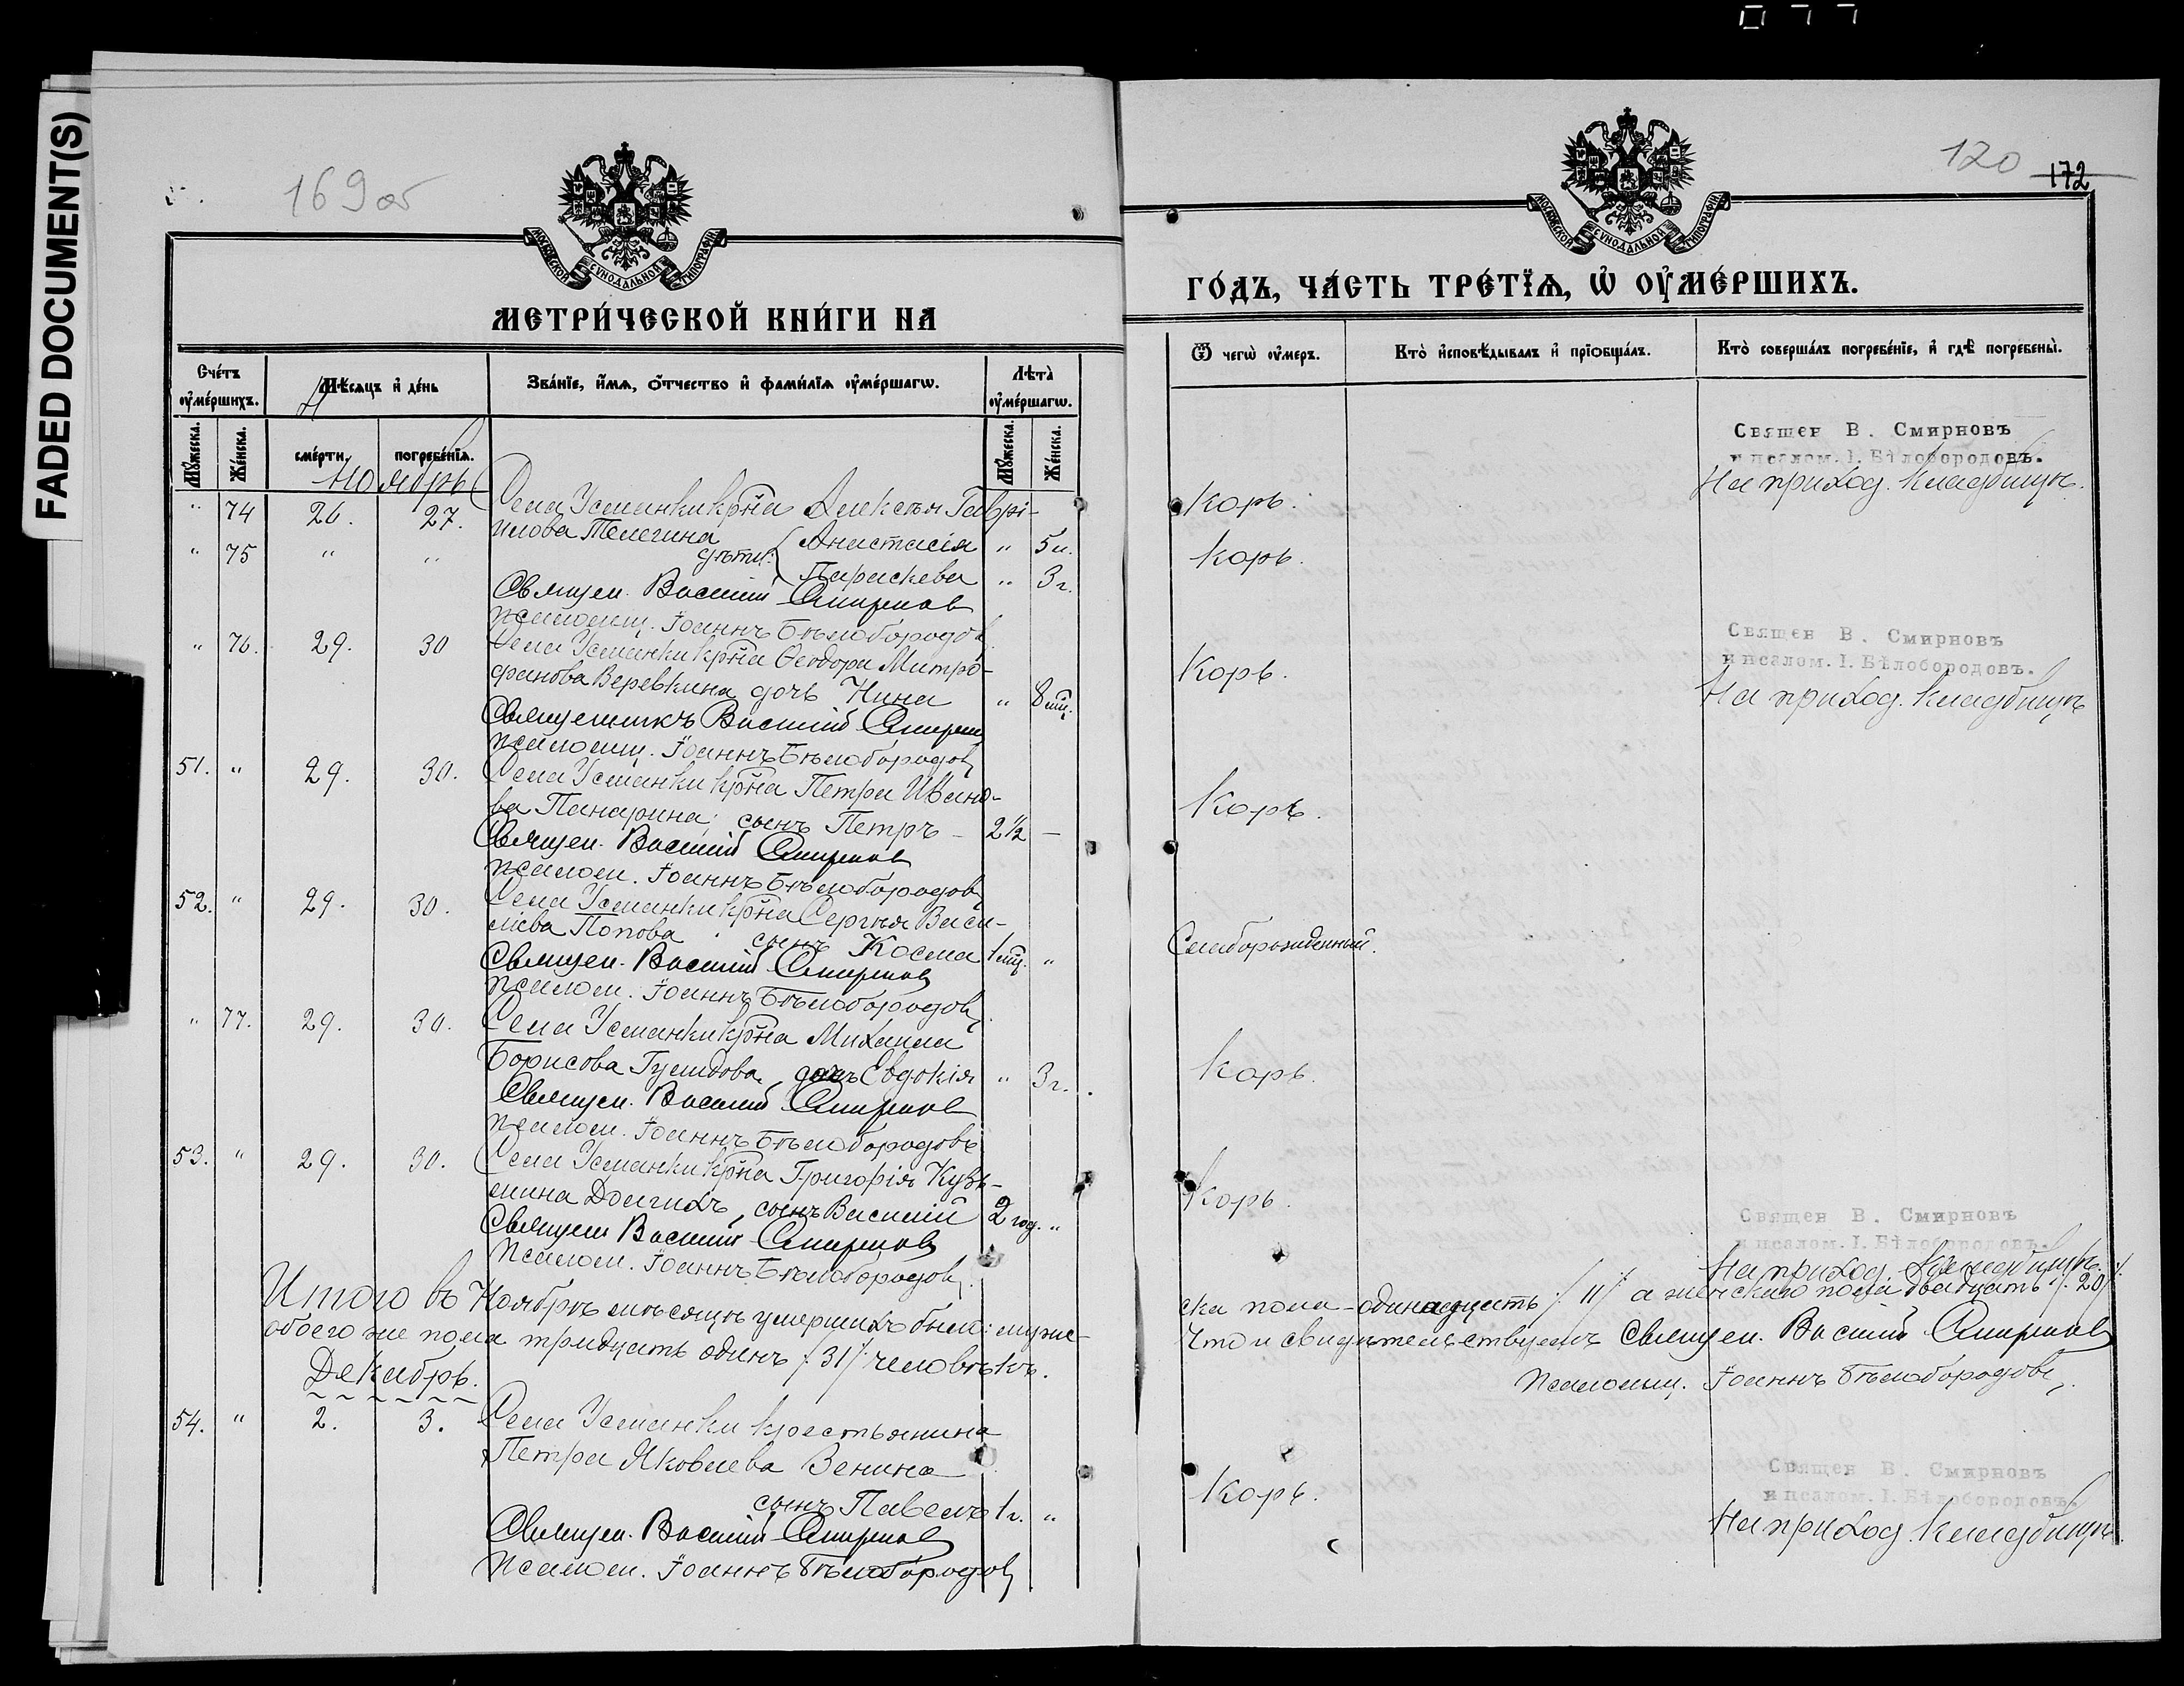 FADED DOCUMENT(S)
169 об
МОСКОВСКОЙ СѴНОДАЛЬНОЙ ТИПОГРАФІИ
МЕТРИ́ЧЕСКОЙ КНИ́ГИ НА
Сче́тъ ѹ҆ме́ршихъ.
Мѣ́сяцъ и҆ де́нь
Зва́нїе, и҆́мѧ, ѻ҆́тчество и҆ фами́лїѧ ѹ҆ме́ршагѡ.
Лѣ́та ѹ҆ме́ршагѡ.
Мꙋ́жеска.
Же́нска.
сме́рти.
погребе́нїѧ.
Мꙋ́жеска.
Же́нска.
Ноябрь
" 74 26. 27. Села Усманки кр̃на Алексѣя Гаврі-
илова Телегина
дѣти: Анастасія " 5 л.
" 75 " " Параскева " 3 г.
Священ. Василій Смирнов
псаломщ. Іоаннъ Бѣлобородов
" 76. 29. 30 Села Усманки кр̃на Ѳеодора Митро-
фанова Веревкина дочь Нина " 8 мц.
Священникъ Василій Смирнов
псаломщ. Іоаннъ Бѣлобородов
51. " 29. 30. Села Усманки кр̃на Петра Ивано-
ва Панарина; сынъ Петръ - 2½ —
Священ. Василій Смирнов
псалом. Іоаннъ Бѣлобородов
52. " 29. 30. Села Усманки кр̃на Сергѣя Васи-
лiева Попова сынъ Косма 1 мц. "
Священ. Василій Смирнов
псалом. Іоаннъ Бѣлобородов
" 77. 29. 30. Села Усманки кр̃на Михаила
Борисова дочь Евдокія " 3 г.
Священ. Василій Смирнов
псалом. Іоаннъ Бѣлобородовъ
53. " 29. 30. Села Усманки кр̃на Григорія Кузь-
мина Долгихъ, сынъ Василій 2 год. "
Священ Василій Смирнов
Псалом. Іоаннъ Бѣлобородов.
Итого въ Ноябрѣ мѣсяцѣ умершихъ было: муже-
обоего же пола тридцать одинъ /31/ человѣкъ.
Декабрь.
54. " 2. 3. Села Усманки крестьянина
Петра Яковлева Венина
сынъ Павелъ 1 г. "
Священ. Василій Смирнов
псалом. Іоаннъ Бѣлобородов
120 172
МОСКОВСКОЙ СѴНОДАЛЬНОЙ ТИПОГРАФІИ
ГО́ДЪ, ЧА́СТЬ ТРЕ́ТЇѦ, Ѡ҆ ОУ҆МЕ́РШИХЪ.
Ѿ чегѡ̀ ѹ҆́меръ.
Кто̀ и҆сповѣ́дывалъ и҆ прїѻбща́лъ.
Кто̀ соверша́лъ погребе́нїе, и҆ гдѣ̀ погребены̀.
Священ В. Смирновъ
и псалом. І. Бѣлобородовъ.
Корь. На приход. кладбищѣ.
Корь.
Священ В. Смирновъ
и псалом. І. Бѣлобородовъ.
Корь. На приход. кладбищѣ
Корь.
Слаборожденный.
Корь.
Корь.
Священ В. Смирновъ
и псалом. І. Бѣлобородовъ.
На приход. кладбищѣ.
ска пола - одинадцать /11/ а женскаго пола двадцать /20/.
Что и свидѣтельствуемъ Священ. Василій Смирнов
Псаломщ. Іоаннъ Бѣлобородовъ.
Священ В. Смирновъ
и псалом. І. Бѣлобородовъ.
Корь. На приход. кладбищѣ.